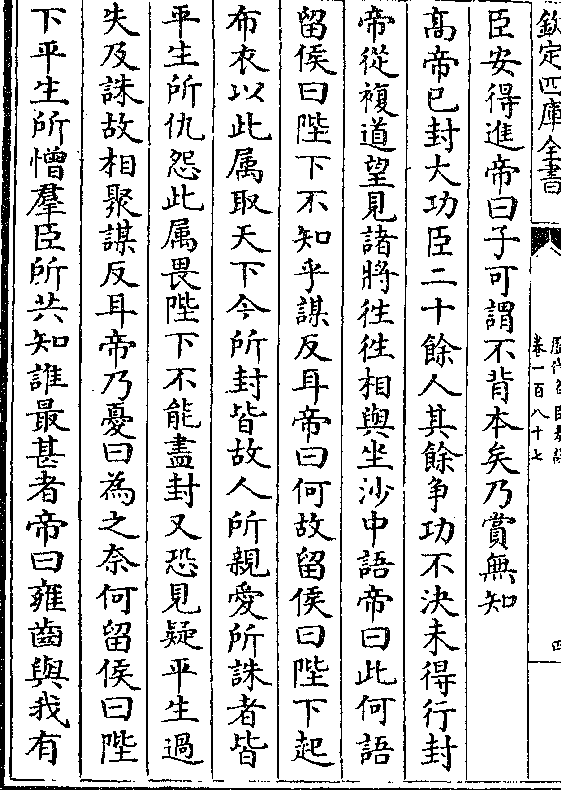 欽定四庫全書
卷一百八十七
四
臣安得進帝曰子可謂不背本矣乃賞無知
髙帝已封大功臣二十餘人其餘争功不決未得行封
帝從複道望見諸將徃徃相與坐沙中語帝曰此何語
留侯曰陛下不知乎謀反耳帝曰何故留侯曰陛下起
布衣以此属取天下今所封皆故人所親愛所誅者皆
平生所仇怨此属畏陛下不能盡封又恐見疑平生過
失及誅故相聚謀反耳帝乃憂曰為之奈何留侯曰陛
下平生所憎羣臣所共知誰最甚者帝曰雍齒與我有